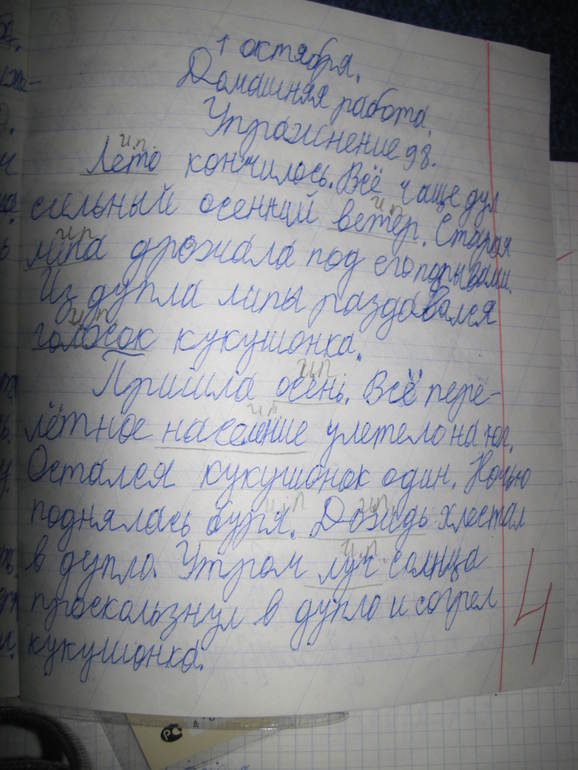 1 октября.
Домашняя работа.
Упражнение 98.
и.п.
Лето кончилось. Всё чаще дул
и.п.
сильный осенний ветер. Старая
и.п.
липа дрожала под его порывами.
Из дупла липы раздавался
и.п.
голосок кукушонка.
и.п.
Пришла осень. Всё пере-
и.п.
лётное население улетело на юг.
Остался кукушонок один. Ночью
и.п. и.п.
поднялась буря. Дождь хлестал
и.п.
в дупло. Утром луч солнца
проскользнул в дупло и согрел
4
кукушонка.